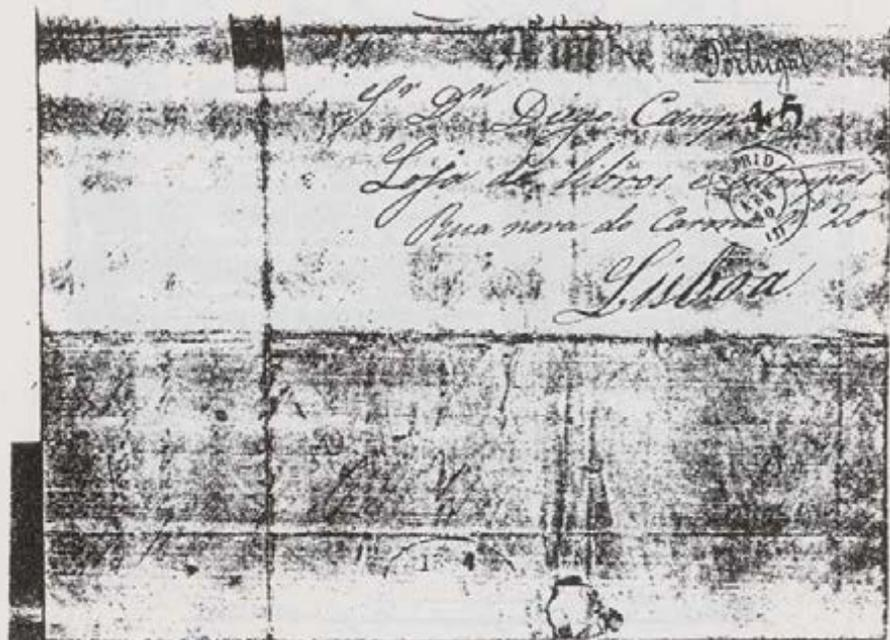 Portugal
Sr Dn Diego Camp
45
Loja de libros e estampas
RID
Rua nova do Carmo nº 20
Lisboa